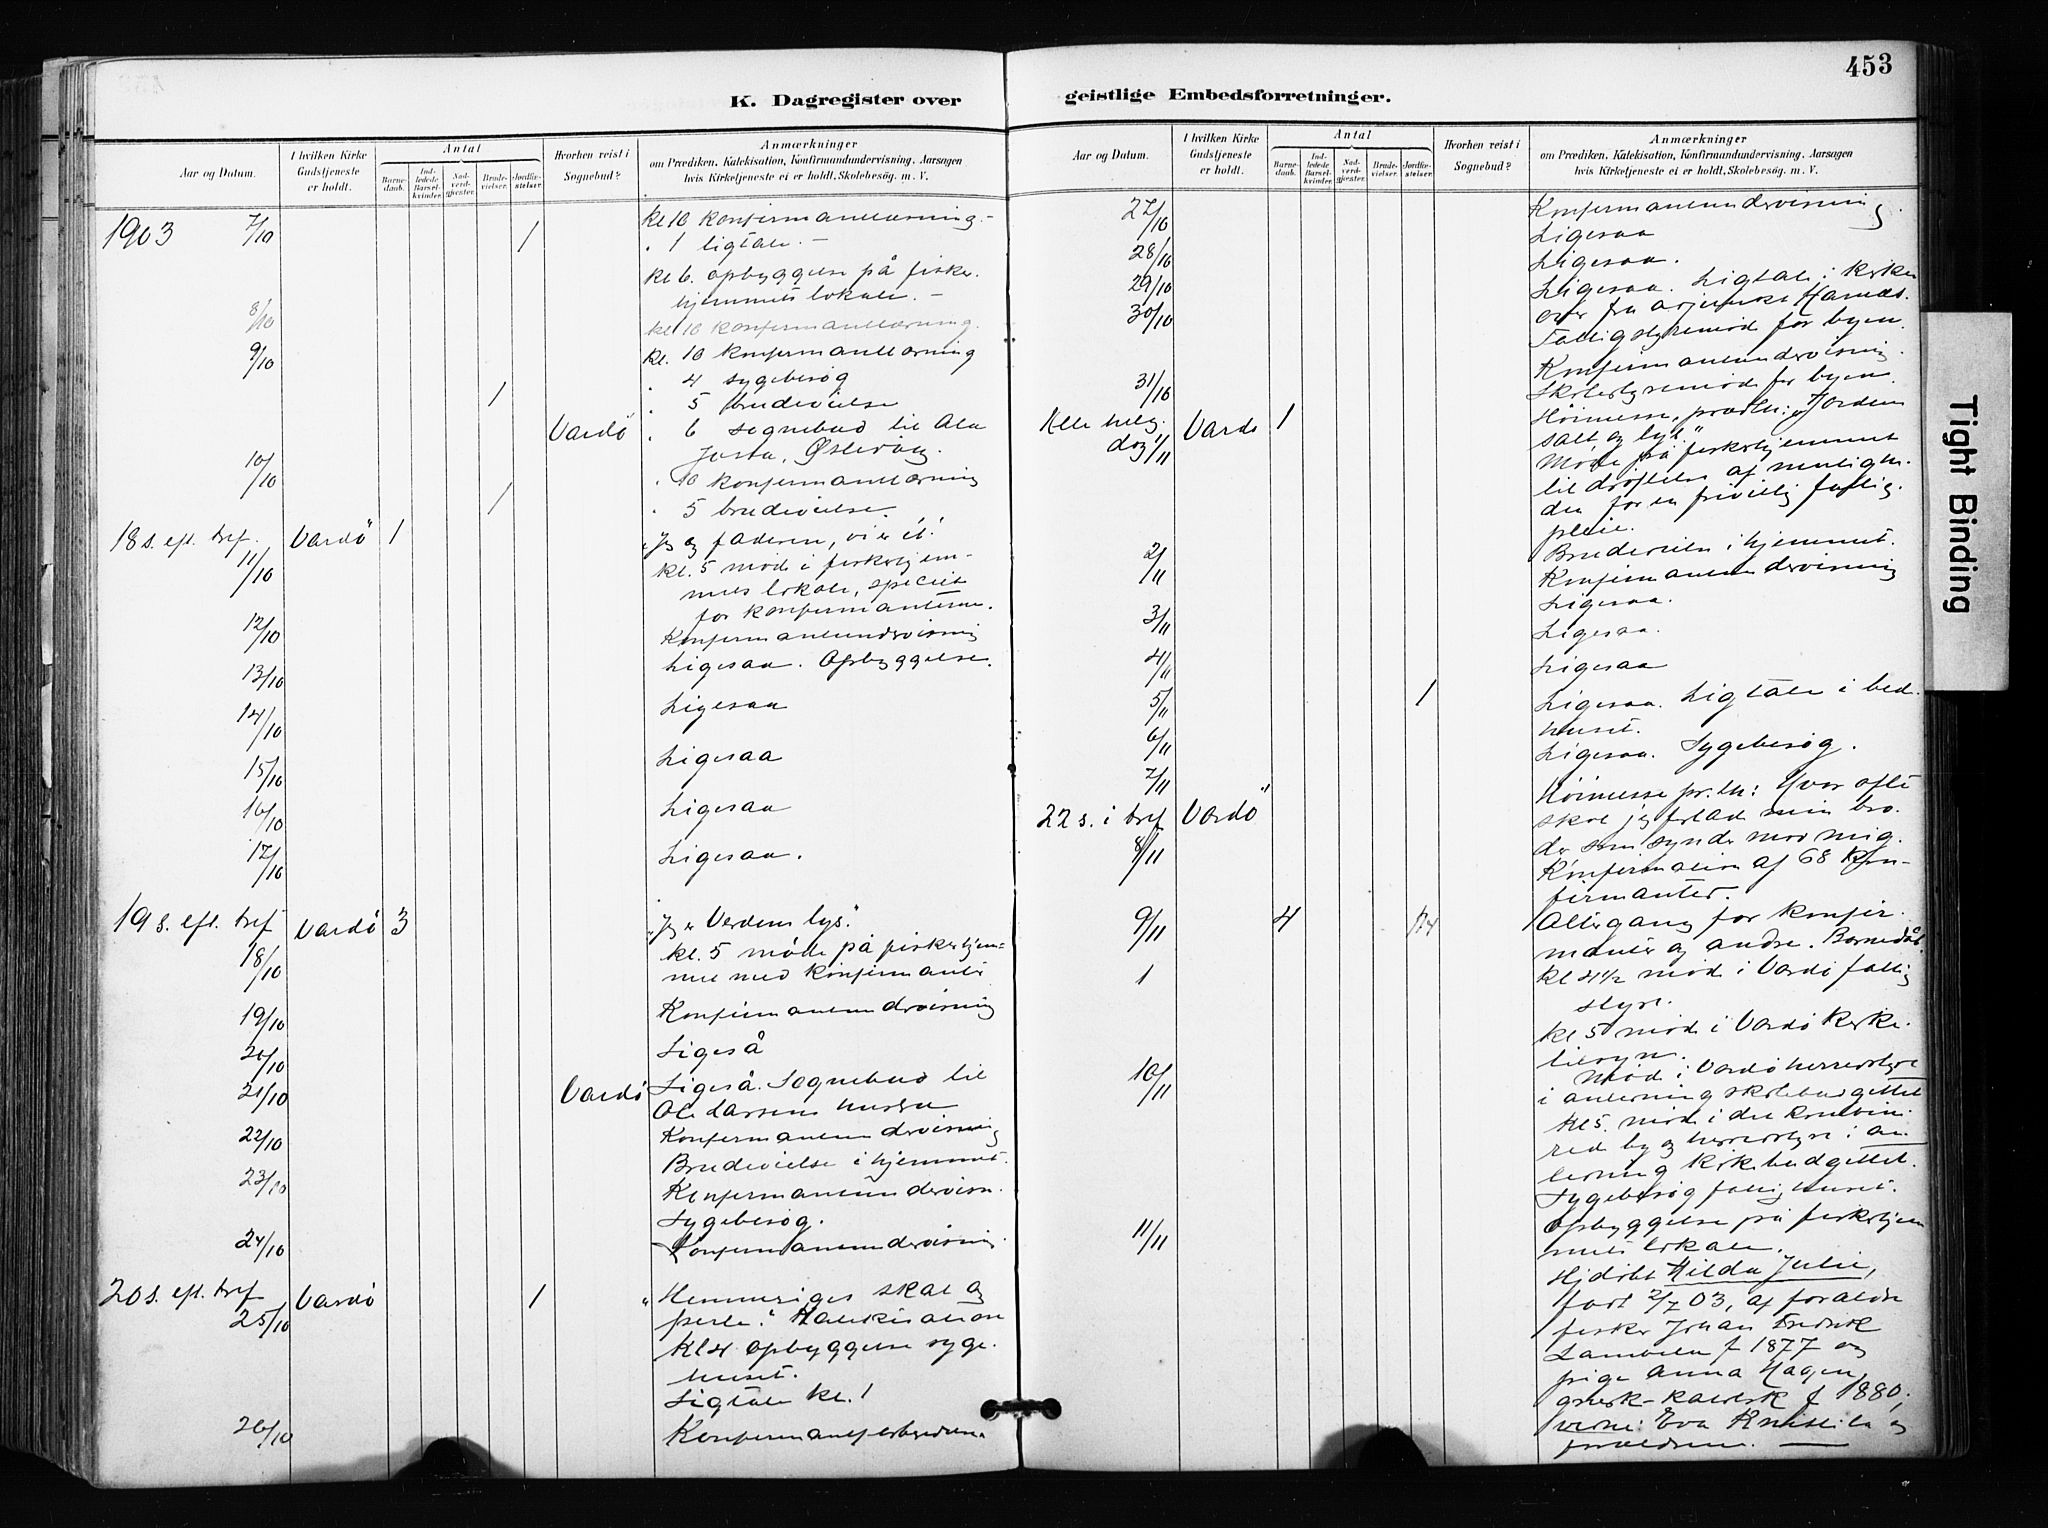 K. Dagregister over
Aar og Datum.
I hvilken Kirke Gudstjeneste er holdt.
Antal
Barnedaab.
Indledede Barselkvinder.
Nadverdgjester.
Brudevielser.
Jordfæstelser.
Hvorhen reist i Sognebud?
Anmærkninger
om Prædiken, Katekisation, Konfirmandundervisning, Aarsagen
hvis Kirketjeneste ei er holdt, Skolebesøg. m. V.
1903 7/10 kl 10 konfirmantlæsning. -
1 " 1 ligtale. -
kl 6. opbyggelse på fisker-
hjemmets lokale. -
8/10 kl 10 konfirmantlæsning.
9/10 kl. 10 konfirmantlæsning
" 4 sygebesøg
1 " 5 brudevielse
Vardö " 6 sognebud til
Østervåg.
10/10 " 10 konfirmantlæsning
1 " 5 brudevielse.
18 s. eft. tref. Vardö 1 "Jeg og faderen, vi er ét."
11/10 kl. 5 møde i fiskerhjem-
mets lokale, specielt
for konfirmanterne.
12/10 Konfirmantundervisning
13/10 Ligesaa. Opbyggelse.
14/10 Ligesaa
15/10 Ligesaa
16/10 Ligesaa
17/10 Ligesaa.
19 s. eft. tref Vardö 3 "Jeg er Verdens lys."
18/10 kl. 5 møde på fiskerhjem-
met med konfirmanter
19/10 Konfirmantundervisning
20/10 Ligeså
21/10 Vardö Ligeså. Sognebud til
Ole Larsens hustru
22/10 Konfirmantundervisning
Brudevielse i hjemmet.
23/10 Konfirmantundervisn.
Sygebesøg.
24/10 Konfirmantundervisning.
20 s. eft. tref Vardö 1 "Himmeriges skat og
25/10 perle." Katekisation
Kl 4 opbyggelse syge-
huset.
Ligtale kl. 1
26/10
453
geistlige Embedsforretninger.
Aar og Datum.
I hvilken Kirke Gudstjeneste er holdt.
Antal
Barnedaab.
Indledede Barselkvinder.
Nadverdgjester.
Brudevielser.
Jordfæstelser.
Hvorhen reist i Sognebud?
Anmærkninger
om Prædiken, Katekisation, Konfirmandundervisning, Aarsagen
hvis Kirketjeneste ei er holdt, Skolebesøg. m. V.
27/10 Konfirmantundervisning.
Ligesaa
28/10 Ligesaa.
29/10 Ligesaa. Ligtale i kirken
30/10 over fru
Fattigstyremøde for byen.
Konfirmantundervisning.
31/10 Skolestyremøde for byen.
Alle helg. Vardö 1 Höimesse, præden: "Jordens
dag 1/11 salt og lys."
Møde på fiskerhjemmet
til drøftelse af mulighe-
den for en frivillig fattig-
pleie.
2/11 Brudevielse i hjemmet.
Konfirmantundervisning
Ligesaa.
3/11 Ligesaa.
4/11 Ligesaa
5/11 1 Ligesaa. Ligtale i bed-
huset.
6/11 Ligesaa. Sygebesøg.
7/11
22 s. i tref Vardö Höimesse pr.: Hvor ofte
8/11 skal jeg forlade min bro-
der som synder mod mig.
Konfirmation af 68 kon-
firmanter.
9/11 4 Altergang for konfir-
manter og andre. Barnedåb.
1 kl 4½ møde i Vardö fattig
styre.
kl 5 møde i Vardö kirke-
tilsyn.
10/11 Møde i Vardö herredstyre
i anledning skolebudgettet
kl 5. møde i det kombine-
rede by og herredstyre i an
ledning kirkebudgettet.
Sygebesøg fattighuset.
11/11 Opbyggelse på fiskerhjem
mets lokale.
Hjdöbt Hilda Julie,
født 2/7 03, af forældre
fisker Johan Fredrik
f 1877 og
pige Anna Hagen,
f 1880;
vidne: Eva og
forældrene.
Tight Binding